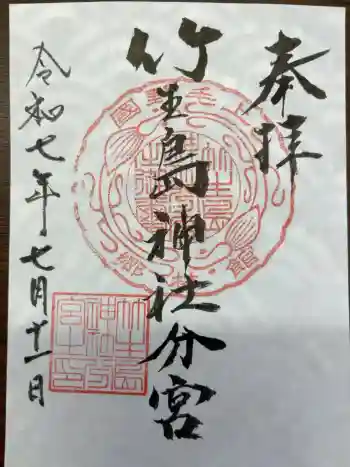 奉拝
竹生島神社分宮
令和七年七月十一日